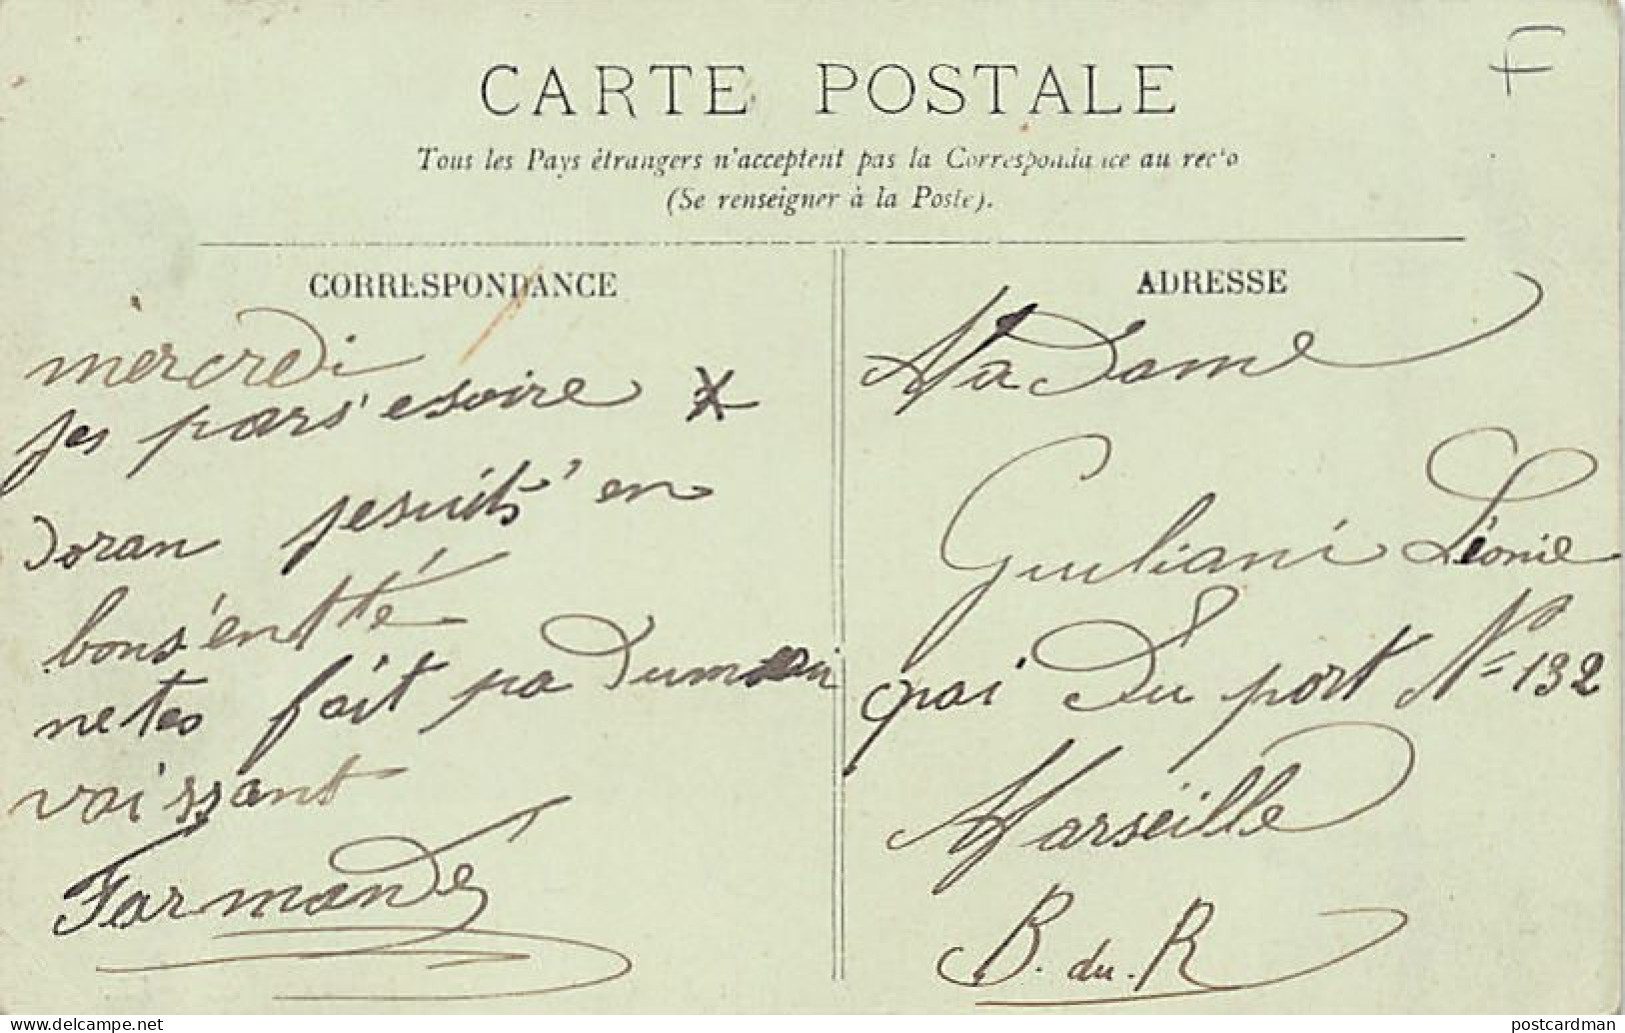 CARTE POSTALE
Tous les Pays étrangers n'acceptent pas la Correspondance au recto
(Se renseigner à la Poste).
CORRESPONDANCE
mercredi
Jes pars' esoire
Doran jesuits' en
bons'entté
netes fait pa Dumauvaissant
Farmand
ADRESSE
MaDame
Giuliani Léonie
quai Du port N° 132
Marseille
B. du. R
postcardman